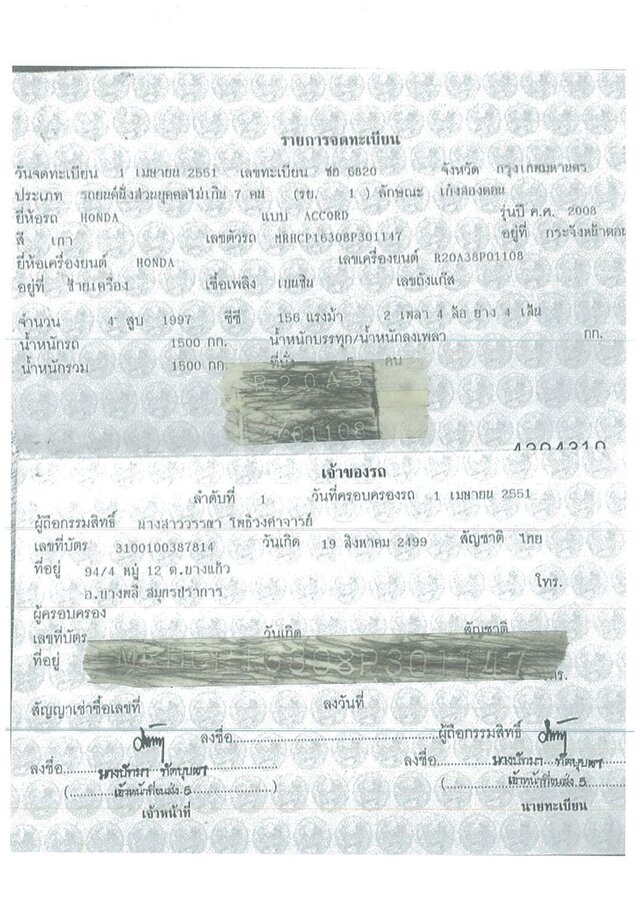 รายการจดทะเบียน
วันจดทะเบียน 1 เมษายน 2551 เลขทะเบียน ชอ 6820 จังหวัด กรุงเทพมหานคร
ประเภท รถยนต์นั่งส่วนบุคคลไม่เกิน 7 คน (รย. 1 ) ลักษณะ เก๋งสองตอน
ยี่ห้อรถ HONDA แบบ ACCORD รุ่นปี ค.ศ. 2008
สี เทา เลขตัวรถ MRHCP16308P301147 อยู่ที่ กระจังหน้าตอน
ยี่ห้อเครื่องยนต์ HONDA เลขเครื่องยนต์ R20A38P01108
อยู่ที่ ซ้ายเครื่อง เชื้อเพลิง เบนซิน เลขถังแก๊ส
จำนวน 4 สูบ 1997 ซีซี 156 แรงม้า 2 เพลา 4 ล้อ ยาง 4 เส้น
น้ำหนักรถ 1500 กก. น้ำหนักบรรทุก/น้ำหนักลงเพลา กก.
น้ำหนักรวม 1500 กก. ที่นั่ง 5 คน
R20A3
701108
4304310
เจ้าของรถ
ลำดับที่ 1 วันที่ครอบครองรถ 1 เมษายน 2551
ผู้ถือกรรมสิทธิ์ นางสาววรรษา โพธิวงศาจารย์
เลขที่บัตร 3100100387814 วันเกิด 19 สิงหาคม 2499 สัญชาติ ไทย
ที่อยู่ 94/4 หมู่ 12 ต.บางแก้ว
อ.บางพลี สมุทรปราการ โทร.
ผู้ครอบครอง
เลขที่บัตร วันเกิด สัญชาติ
ที่อยู่ MRHCP16308P301147 โทร.
สัญญาเช่าซื้อเลขที่ ลงวันที่
ลงชื่อ ผู้ถือกรรมสิทธิ์
ลงชื่อ นางปัทมา ทัตบุบผา ลงชื่อ นางปัทมา ทัตบุบผา
(เจ้าหน้าที่ขนส่ง 5) (เจ้าหน้าที่ขนส่ง 5
เจ้าหน้าที่ นายทะเบียน